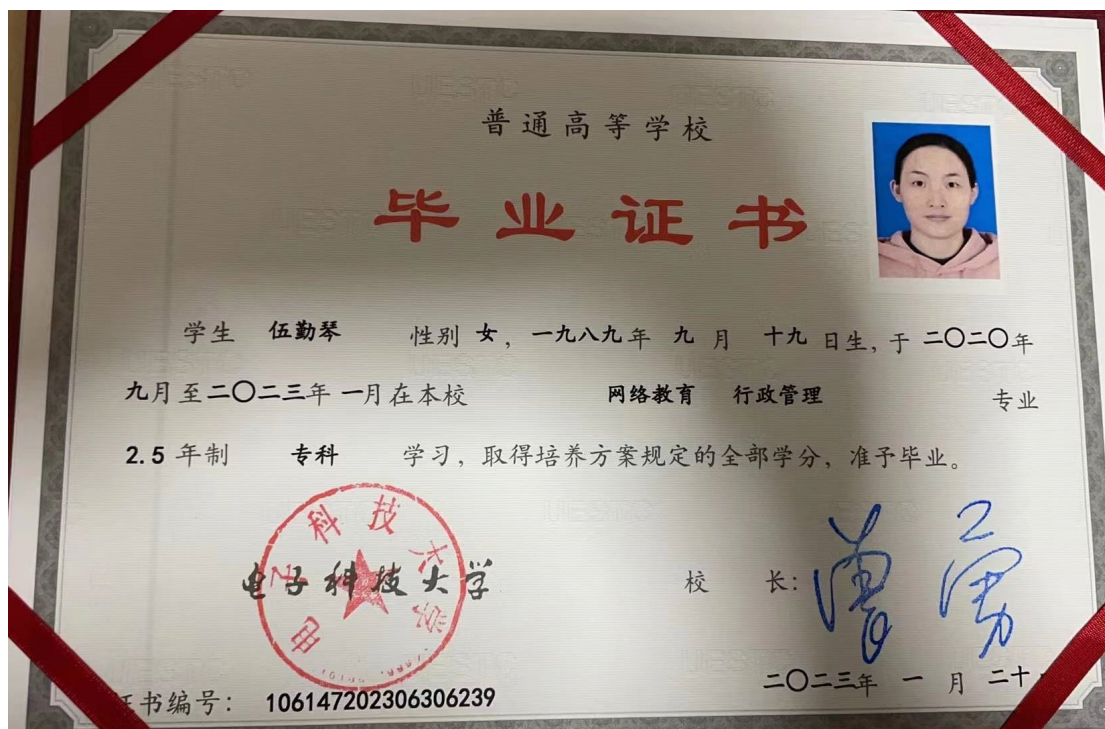 普通高等学校
毕业证书
学生 伍勤琴 性别 女，一九八九年 九 月 十九 日生，于 二〇二〇年
九月至二〇二三年 一月在本校 网络教育 行政管理 专业
2.5 年制 专科 学习，取得培养方案规定的全部学分，准予毕业。
电子科技大学
电子科技大学
校 长：曾勇
二〇二三年 一 月 二十
证书编号：106147202306306239
UESTC